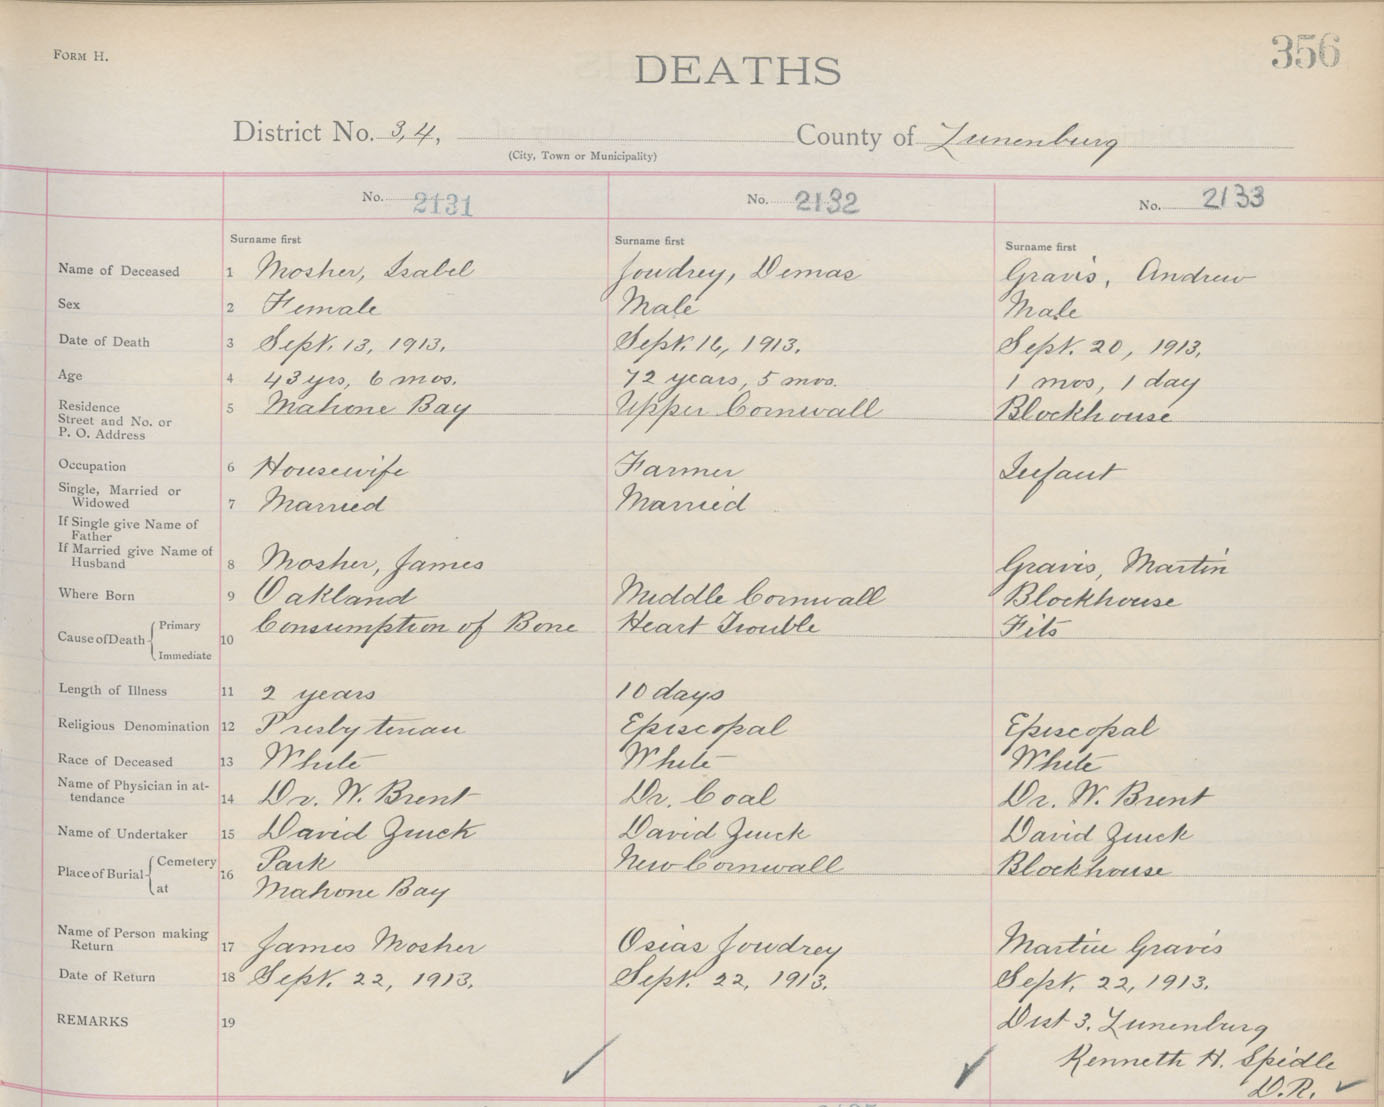 FORM H.
356
DEATHS
District No. 3, 4,
(City, Town or Municipality)
County of Lunenburg
No. 2131
No. 2132
No. 2133
Surname first
Surname first
Surname first
Name of Deceased 1 Mosher, Isabel Joudrey, Demas Gravis, Andrew
Sex 2 Female Male Male
Date of Death 3 Sept. 13, 1913. Sept. 16, 1913. Sept. 20, 1913.
Age 4 43 yrs, 6 mos. 72 years, 5 mos. 1 mos, 1 day
Residence
Street and No. or
P. O. Address
5 Mahone Bay Upper Cornwall Blockhouse
Occupation 6 Housewife Farmer Infant
Single, Married or
Widowed 7 Married Married
If Single give Name of
Father
If Married give Name of
Husband 8 Mosher, James Gravis, Martin
Where Born 9 Oakland Middle Cornwall Blockhouse
Cause of Death Primary
Immediate
10 Consumption of Bone Heart Trouble Fits
Length of Illness 11 2 years 10 days
Religious Denomination 12 Presbyterian Episcopal Episcopal
Race of Deceased 13 White White White
Name of Physician in at-
tendance 14 Dr. W. Brent Dr. Coal Dr. W. Brent
Name of Undertaker 15 David Zinck David Zinck David Zinck
Place of Burial Cemetery
at
16 Park New Cornwall Blockhouse
Mahone Bay
Name of Person making
Return 17 James Mosher Osias Joudrey Martin Gravis
Date of Return 18 Sept. 22, 1913. Sept. 22, 1913. Sept. 22, 1913.
REMARKS 19 Dist 3. Lunenburg
Kenneth H. Spidle
D.R.